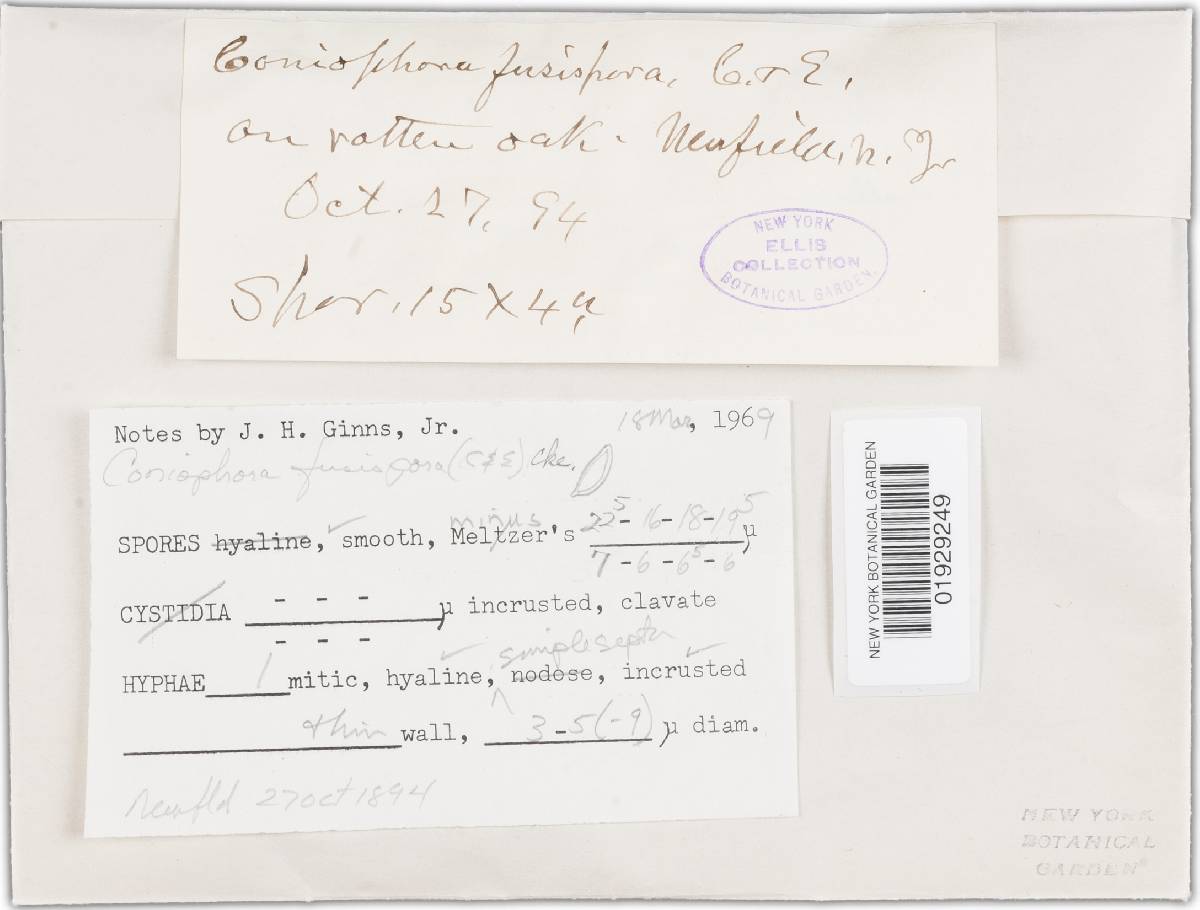 Coniophora fusispora, C. & E.
on rotten oak - Newfield, N. J.
Oct. 27, 94
Spor. 15 X 4 µ
NEW YORK
ELLIS
COLLECTION
BOTANICAL GARDEN.
Notes by J. H. Ginns, Jr. 18 Mar, 1969
Coniophora fusispora (C & E) Cke.
SPORES hyaline, smooth, Meltzer's minus 22⁵- 16- 18- 19⁵ µ
7 - 6 - 6⁵ - 6
CYSTIDIA - - - µ incrusted, clavate
- - -
HYPHAE 1 mitic, hyaline, simple septa nodose, incrusted
thin wall, 3 - 5 (-9) µ diam.
Newfld 27 Oct 1894
NEW YORK BOTANICAL GARDEN
01929249
NEW YORK
BOTANICAL
GARDEN